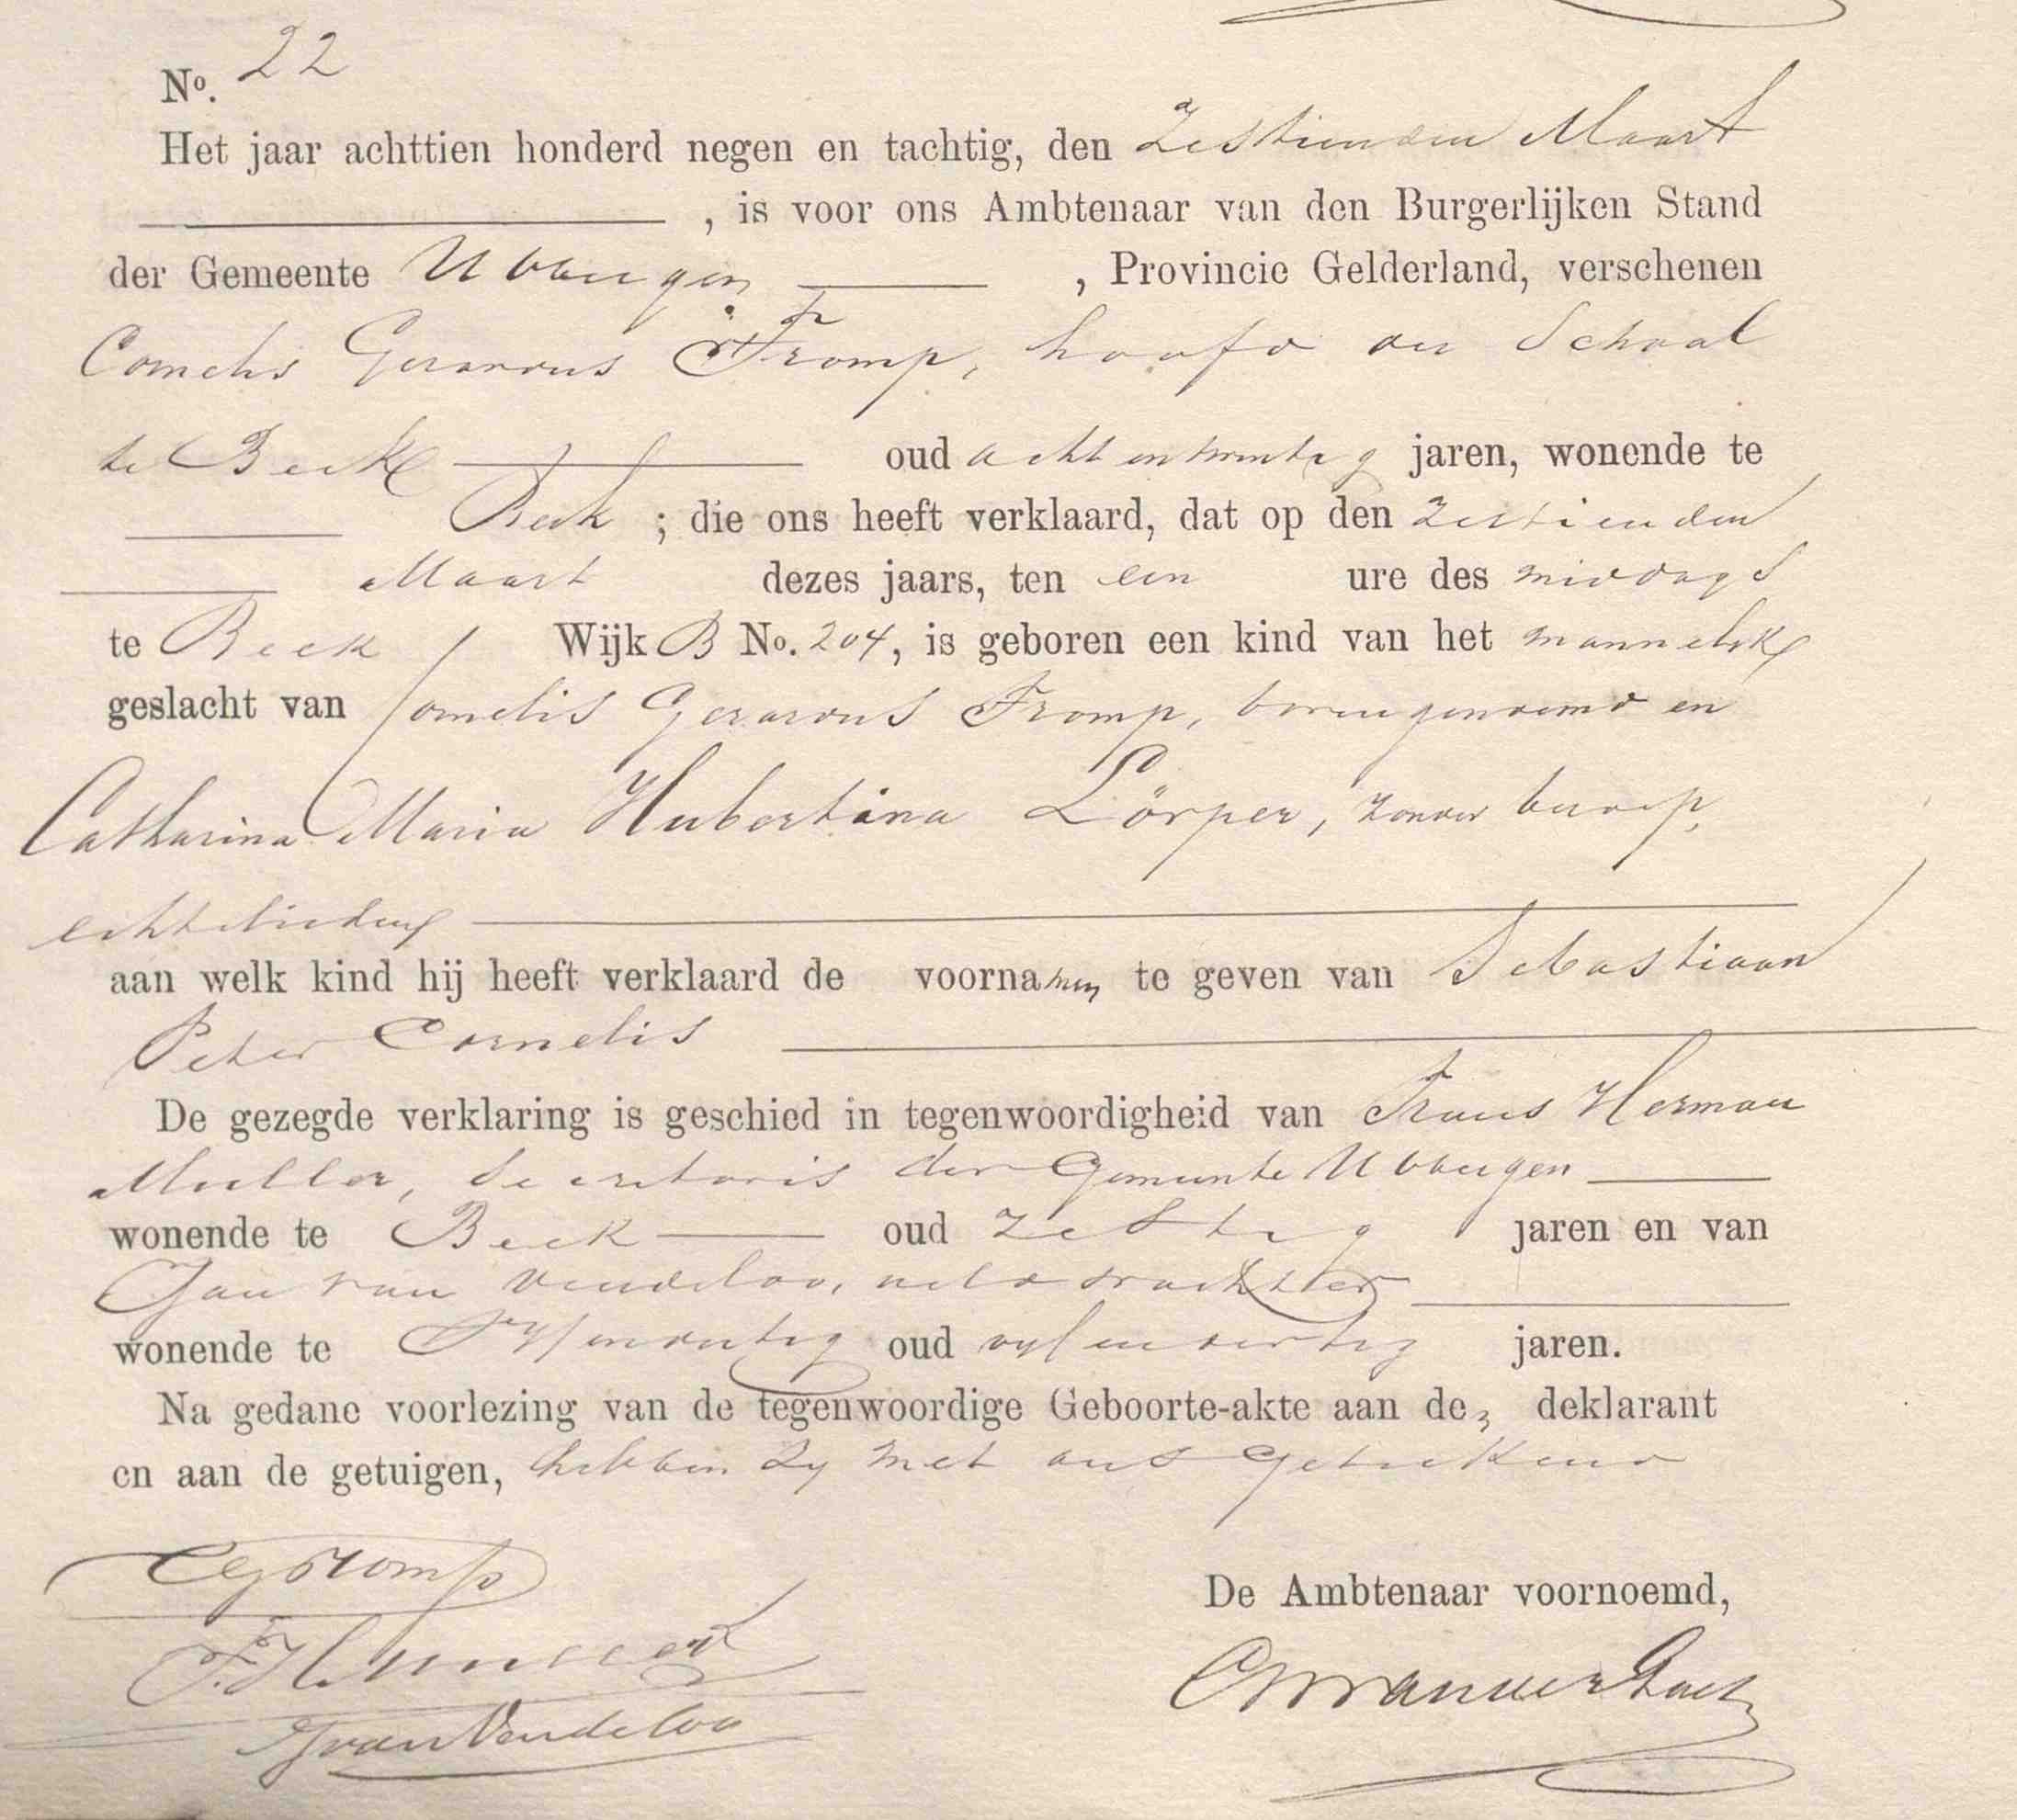 No. 22
Het jaar achttien honderd negen en tachtig, den Zestienden Maart
, is voor ons Ambtenaar van den Burgerlijken Stand
der Gemeente Ubbergen , Provincie Gelderland, verschenen
Cornelis Gerardus Tromp, hoofd der School
te Beek oud achtentwintig jaren, wonende te
Beek ; die ons heeft verklaard, dat op den zestienden
Maart dezes jaars, ten een ure des middags
te Beek Wijk B No. 204, is geboren een kind van het mannelijk
geslacht van Cornelis Gerardus Tromp, bovengenoemd en
Catharina Maria Hubertina Lörper, zonder beroep,
echtelieden
aan welk kind hij heeft verklaard de voornamen te geven van Sebastiaan
Peter Cornelis
De gezegde verklaring is geschied in tegenwoordigheid van Frans Herman
Muller, Secretaris der Gemeente Ubbergen
wonende te Beek oud zestig jaren en van
Jan van Vendeloo, veldwachter
wonende te oud vijfenveertig jaren.
Na gedane voorlezing van de tegenwoordige Geboorte-akte aan den deklarant
en aan de getuigen, hebben zij met ons geteekend
CGTromp
De Ambtenaar voornoemd,
F.H. Muller
JvanVendeloo